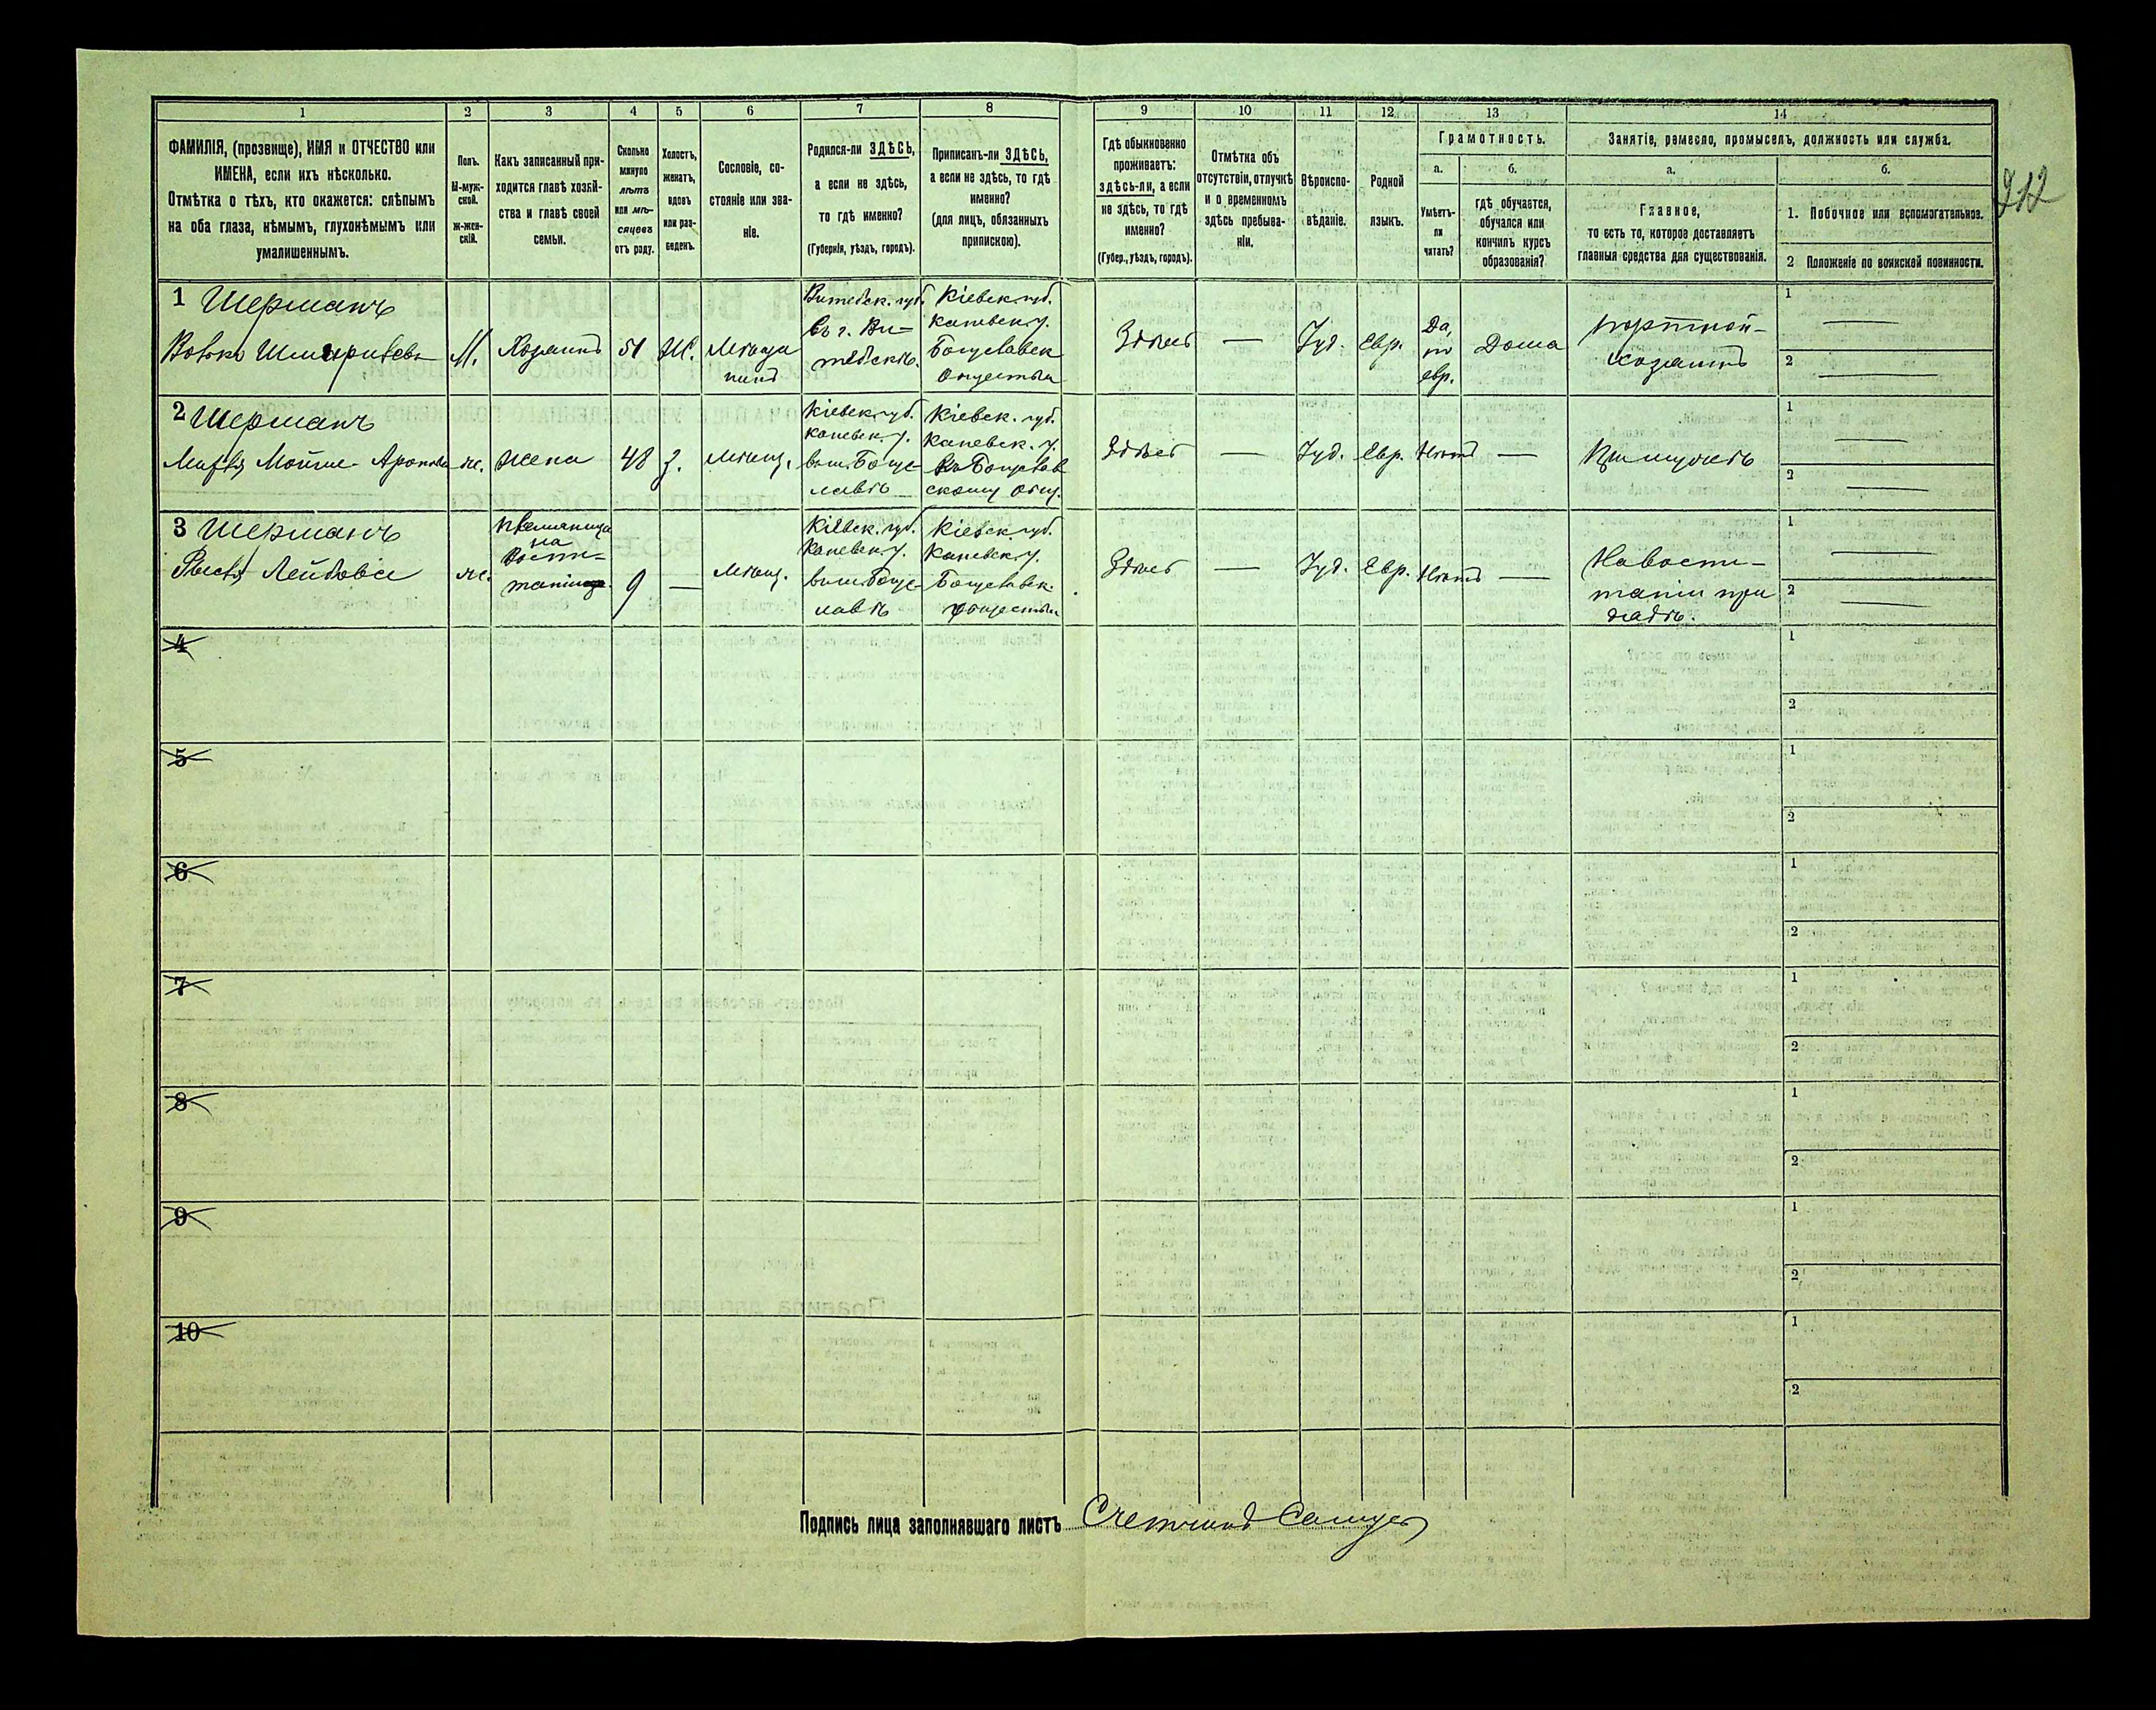 1 2 3 4 5 6 7 8 9 10 11 12 13 14
ФАМИЛІЯ, (прозвище), ИМЯ и ОТЧЕСТВО или
ИМЕНА, если ихъ нѣсколько.
Отмѣтка о тѣхъ, кто окажется: слѣпымъ
на оба глаза, нѣмымъ, глухонѣмымъ или
умалишеннымъ.
Полъ.
М-муж-
ской.
ж-жен-
скій.
Какъ записанный при-
ходится главѣ хозяй-
ства и главѣ своей
семьи.
Сколько
минуло
лѣтъ
или мѣ-
сяцевъ
отъ роду.
Холостъ,
женатъ,
вдовъ
или раз-
веденъ.
Сословіе, со-
стояніе или зва-
ніе.
Родился-ли ЗДѢСЬ,
а если не здѣсь,
то гдѣ именно?
(Губернія, уѣздъ, городъ).
Приписанъ-ли ЗДѢСЬ,
а если не здѣсь, то гдѣ
именно?
(для лицъ, обязанныхъ
припискою).
Гдѣ обыкновенно
проживаетъ:
здѣсь-ли, а если
не здѣсь, то гдѣ
именно?
(Губер., уѣздъ, городъ).
Отмѣтка объ
отсутствіи, отлучкѣ
и о временномъ
здѣсь пребыва-
ніи.
Вѣроиспо-
вѣданіе.
Родной
языкъ.
Грамотность.
а.
Умѣетъ-
ли
читать?
б.
гдѣ обучается,
обучался или
кончилъ курсъ
образованія?
Занятіе, ремесло, промыселъ, должность или служба.
а.
Главное,
то есть то, которое доставляетъ
главныя средства для существованія.
б.
1. Побочное или вспомогательное.
2 Положеніе по воинской повинности.
212
1 Шерманъ
М.
Хозяинъ
51
Ж.
Мѣща
нинъ
Витебск. губ.
въ г. Ви-
тебскѣ.
Кіевск. губ.
Каневск. у.
Богуславск
Здѣсь
—
Іуд.
Евр.
Да,
по
евр.
Дома
портной-
хозяинъ
1 —
2 —
2 Шерманъ
ж.
Жена
48
З.
Мѣщ.
Кіевск. губ.
Каневск. у.
вм. Богус-
лавѣ
Кіевск. губ.
Каневск. у.
Къ Богуслав
скому общ.
Здѣсь
—
Іуд.
Евр.
Нѣтъ
—
При мужѣ
1 —
2 —
3 Шерманъ
Лейбова
ж.
на
Воспи-
9
—
Мѣщ.
Кіевск. губ.
Каневск. у.
вм. Богус-
лавѣ
Кіевск. губ.
Каневск. у.
Богуславск.
Здѣсь
—
Іуд.
Евр.
Нѣтъ
—
На воспи-
таніи при
дядѣ.
1 —
2 —
4
1
2
5
1
2
6
1
2
7
1
2
8
1
2
9
1
2
10
1
2
Подпись лица заполнявшаго листъ Счетчикъ